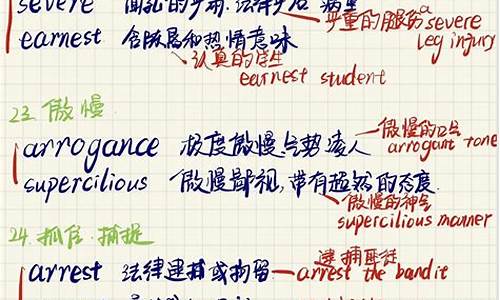 severe
严重的腿伤 a severe
leg injury
earnest 含
和热情意味
认真的学生
earnest student
23. 傲慢
arrogance 极度傲慢,气势凌人
傲慢的口气
arrogant tone
supercilious 傲慢鄙视,带有超然的态度
傲慢的神气
supercilious manner
24. 抓住、捕捉
arrest 法律逮捕或拘留
逮捕匪徒
arrest the bandit